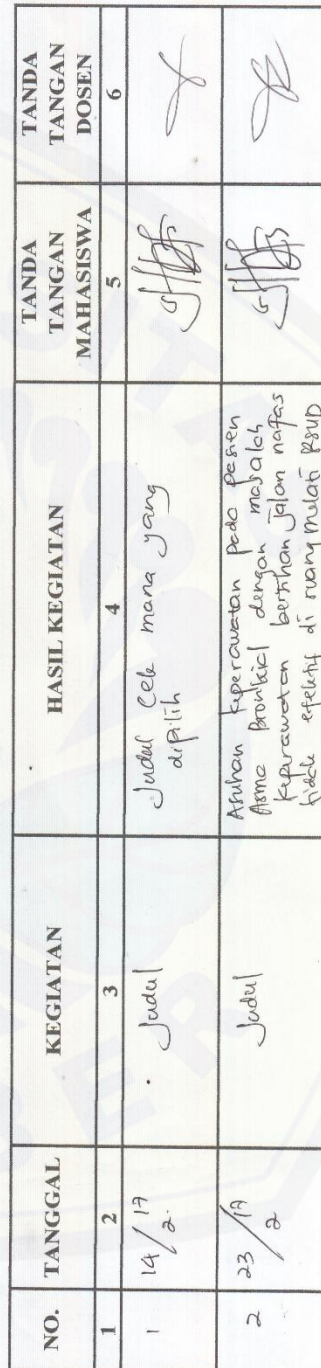 NO.
TANGGAL
KEGIATAN
HASIL KEGIATAN
TANDA
TANGAN
MAHASISWA
TANDA
TANGAN
DOSEN
1
2
3
4
5
6
1
14/2 17
Judul
Judul cek mana yang
dipilih
2
23/2 17
Judul
Asuhan keperawatan pada pasien
Asma Bronkial dengan masalah
keperawatan bersihan jalan nafas
tidak efektif di ruang melati RSUD